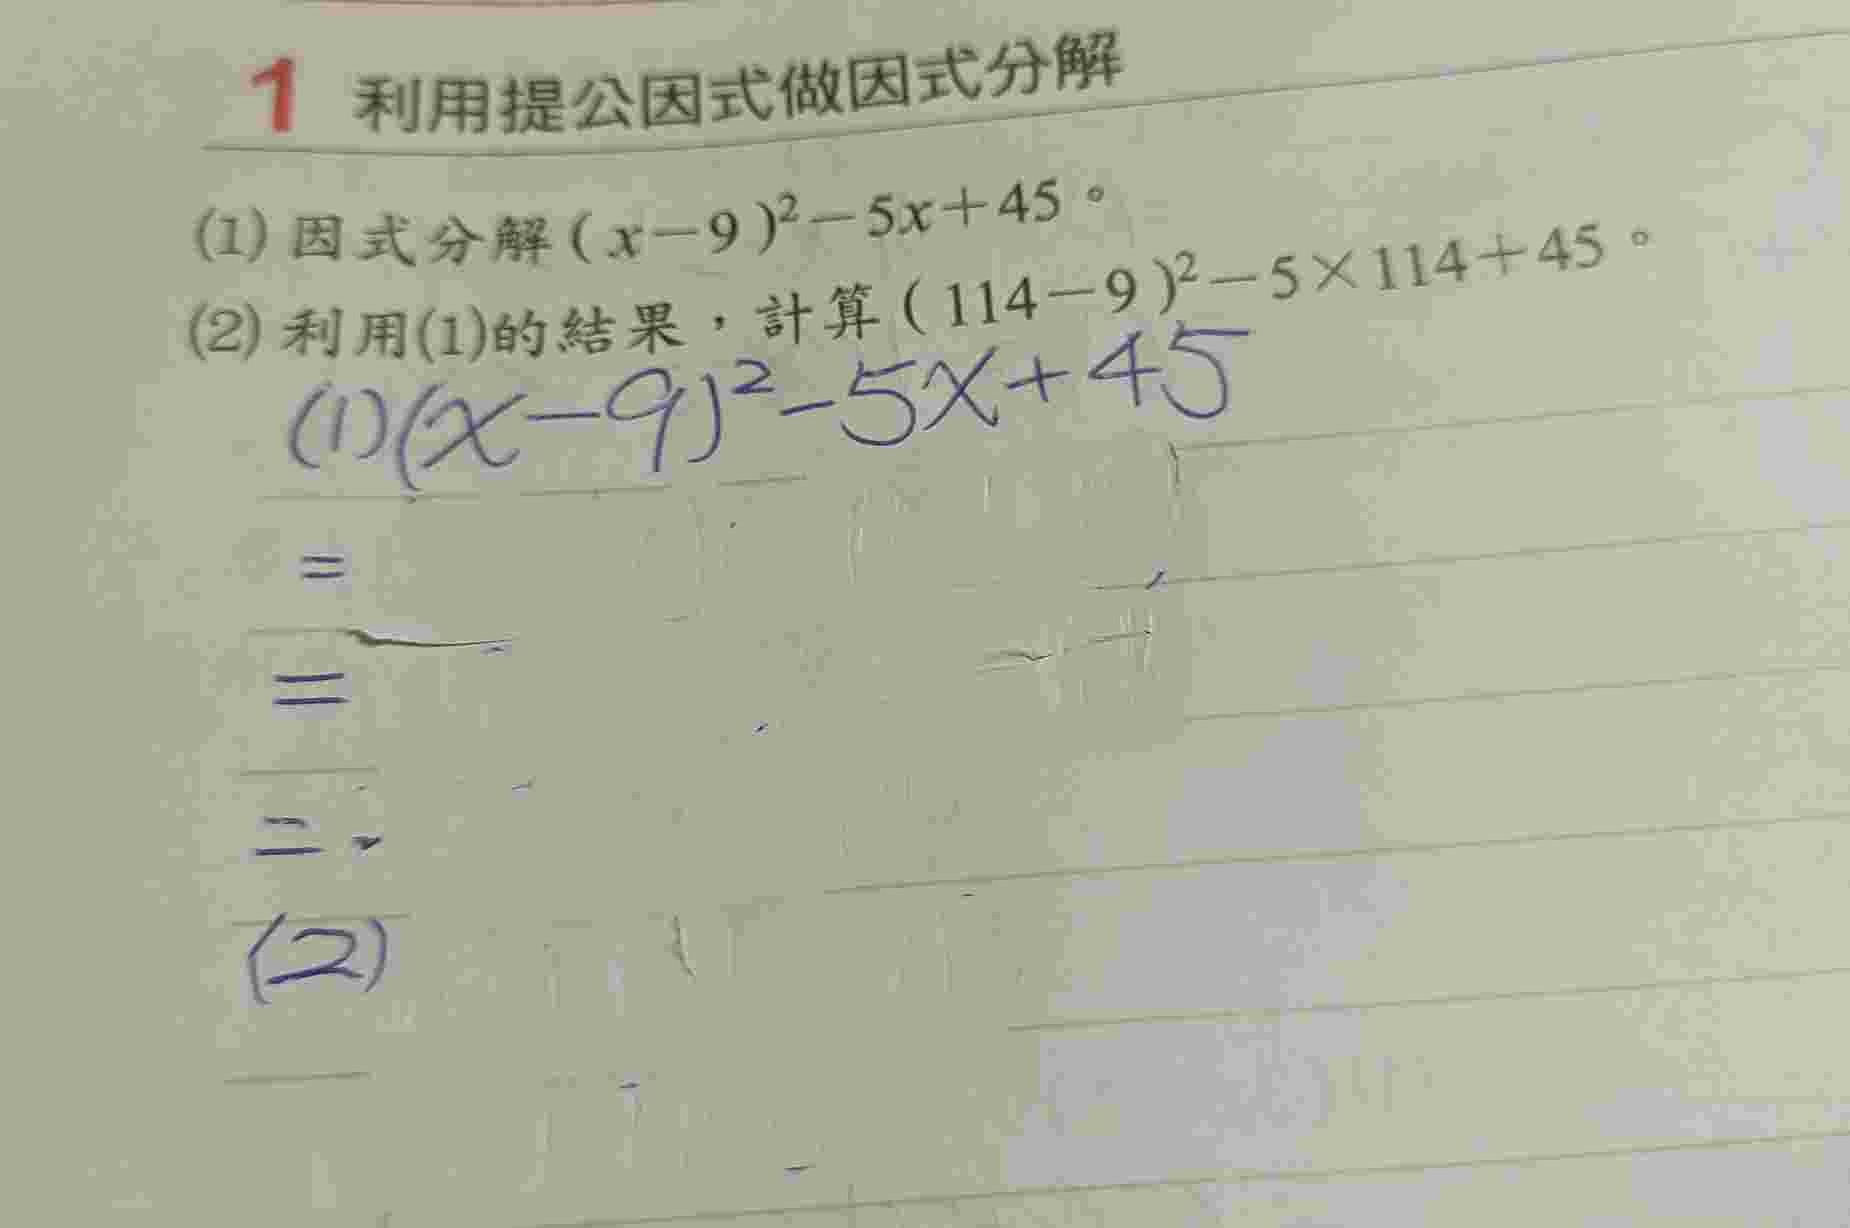 1 利用提公因式做因式分解
(1) 因式分解(x－9)²－5x＋45。
(2) 利用(1)的結果，計算(114－9)²－5×114＋45。
(1)(x-9)²-5x+45
=
=
=
(2)